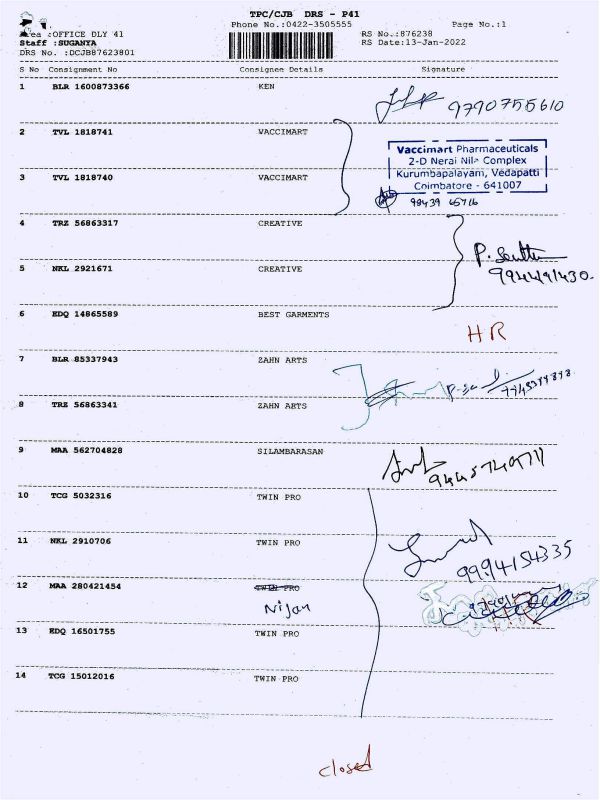 TPC/CJB DRS - P41
Area :OFFICE DLY 41 Phone No.:0422-3505555 Page No.:1
Staff :SUGANYA RS No.:876238
DRS No. :DCJB87623801 RS Date:13-Jan-2022
S No Consignment No Consignee Details Signature
1 BLR 1600873366 KEN
9790755610
2 TVL 1818741 VACCIMART
Vaccimart Pharmaceuticals
2-D Nerai Nila Complex
Kurumbapalayam, Vedapatti
Coimbatore - 641007
3 TVL 1818740 VACCIMART
98439 65716
4 TRZ 56863317 CREATIVE
5 NKL 2921671 CREATIVE
9944491430.
6 EDQ 14865589 BEST GARMENTS
HR
7 BLR 85337943 ZAHN ARTS
8 TRZ 56863341 ZAHN ARTS
9 MAA 562704828 SILAMBARASAN
10 TCG 5032316 TWIN PRO
11 NKL 2910706 TWIN PRO
9994154335
12 MAA 280421454 TWIN PRO
13 EDQ 16501755 TWIN PRO
14 TCG 15012016 TWIN PRO
closed